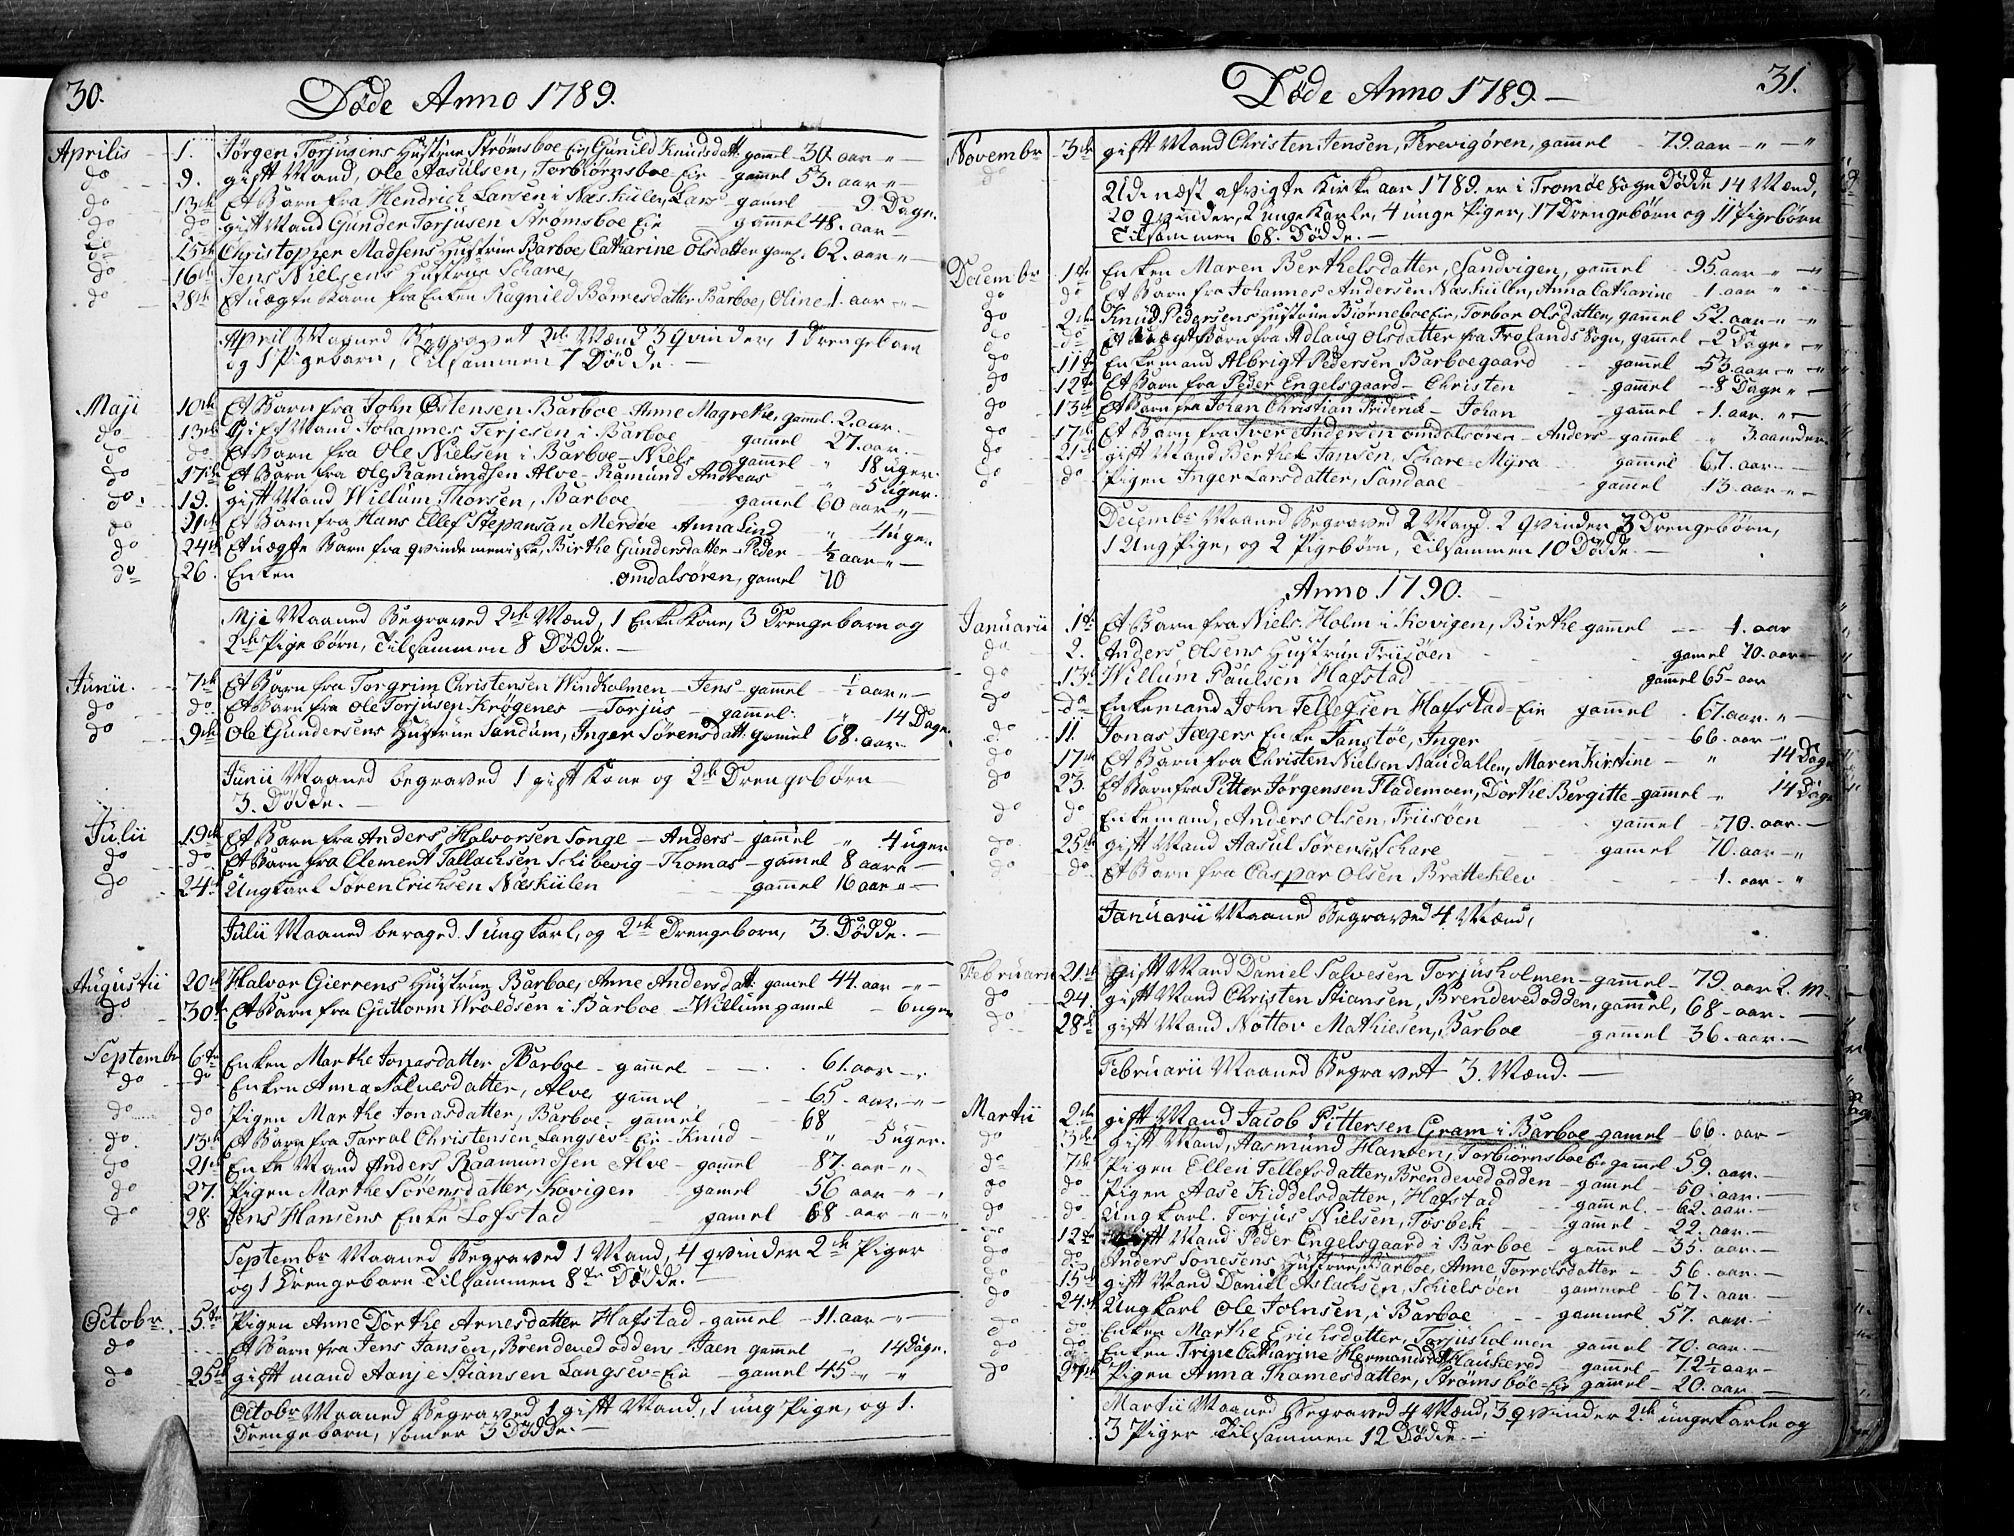 30.
Døde Anno 1789.
Aprilis 1. Jørgen Torjusens Hustrue Strømsboe Eie, Gunild Knudsdatt: gamel 30 aar
do 9. gift Mand, Ole Aasulsen, Torbiørnsboe Eie gamel 53. aar
do 13de Et Barn fra Hendrich Larsen i Næskilen, Lars gamel 9 Dage.
do do gift Mand Gunder Torjusen Strømsboe Eie gamel 48. aar
do 15de Christopher Madsens Hustrue Barboe, Catharine Olsdatter gamel. 62. aar
do 16de Jens Nielsens Hustrue Schare,
do 28de Et uægte Barn fra Enken Ragnild Barresdatter Barboe, Oline 1. aar
April Maaned Begravet 2de Mænd 3 qvinder, 1 Drengebarn
og 1 Pigebarn, Tilsammen 7 Døde.
Maji 10de Et Barn fra John Østensen Barboe Anne Magrethe, gamel 2. aar.
do 13de Gift Mand Johannes Terjesen i Barboe gamel 27. aar.
do do Et Barn fra Ole Nielsen i Barboe Niels gamel 18 uger
do 17de Et Barn fra Ole Ramundsen Alve Ramund Andreas 5 uger.
do 19. gift Mand Willum Thorsen, Barboe gamel 60 aar
do 21de Et Barn fra Hans Ellef Stepansøn Merdøe Anna 4 uger
do 24de Et uægte Barn fra qvindemeniske, Birthe Gundersdatter Peder ½ aar
do 26. Enken omdalsøren, gamel 70
Mji Maaned Begraved 2de Mænd, 1 EnkeKone, 3 Drengebarn og
2de Pigebørn, Tilsammen 8 Dødde.
Junii. 7de Et Barn fra Torgrim Christensen Windholmen Jens gamel ½ aar
do do. Et Barn fra Ole Torjusen Krøgenes Torjus gamel 14 Dage
do 9de Ole Gundersens Hustrue Sandum, Inger Sørensdatt: gamel 68. aar
Junii Maaned begraved 1 gift Kone og 2de Drengebørn
3. Dødde.
Julii 19de Et Barn fra Anders Halvorsen Songe Anders gamel 4 uger
do do Et Barn fra Clement Tallachsen Schibevig Thomas gamel 8 aar
do 24de Ungkarl Søren Erichsen Næskilen gamel 16 aar
Julii Maaned beraged. 1 ungkarl, og 2de Drengeborn, 3. Dødde.
Augustii 20de Halvor Gierrens Hustrue Barboe, Anne Andersdatt: gamel 44. aar
do 30te Et Barn fra Guttorm Wroldsen i Barboe Willum gamel 6 uger
Septembr 6te Enken Marthe Jonasdatter, Barboe gamel 61. aar
do do Enken Anna Salvesdatter, Alve gamel 65. aar
do do Pigen Marthe Jonasdatter, Barboe, gamel 68
do. 13de Et Barn fra Tarral Christensen Langsev Eie Knud 5 uger.
do 21de Enke Mand Anders Raamundsen Alve gamel 87. aar
do 27. Pigen Marthe Sørensdatter, Kovigen gamel 56 aar
do 28 Jens Hansens Enke Lofstad gamel 68 aar
Septembr Maaned Begraved 1 Mand, 4 qvinder 2de Piger
og 1 Drengebarn Tilsammen 8te Dødde.
Octobr 5te Pigen Anne Dorthe Arnesdatter Hafstad gamel 11. aar
do Et Barn fra Jens Jansen, Brendevedoddens Jaen gamel 14 Dage.
do 25de gift mand Aanje Stiansen Langsev Eie gamel 45
Octobr Maaned Begraved 1 gift Mand, 1 ung Pige, og 1.
Drengebarn, som er 3 Dødde.
31.
Døde Anno 1789.
Novembr 3de gift Mand Christen Jensen, Færevigøren, gamel 79. aar
do
Udi næst afvigte Kirke aar 1789. er i Tromøe Sogn Dødde 14 Mænd,
20 qvinder, 2 unge Karle, 4 unge Piger, 17 Drengebørn og 11 Pigebørn
Tilsammen 68. Dødde.
Decembr 1te Enken Maren Berthelsdatter, Sandvigen, gamel 95. aar
do do Et Barn fra Johannes Andersen Næskilen, Anna Catharine 1. aar
do 2den Knud Pedersens Hustrue Biørneboe Eie, Torbor Olsdatter, gamel 52. aar
do do Et uægt Barn fra Adlaug Olsdatter fra Frolands Sogn, gamel 2 Dage
do 11te Enkemand Albrigt Pedersen Barboegaard gamel 53. aar
do 12te Et Barn fra Peder Engelsgaard Christen gamel 8 Dage
do 13de Et Barn fra Johan Christian Friderich Johan gamel 1. aar.
do 17de Et Barn fra Iver Andersen omdalsøren Anders gamel 3 aaneder
do 21de gift Mand Berthel Jansen, Schare Myra gamel 67. aar
do do Pigen Inger Larsdatter, Sandaae gamel 13. aar
Decembr Maaned Begraved 2 Mand. 2 qvinder 3 Drengebørn,
1 Ung Pige, og 2 Pigebørn, Tilsammen 10 Dødde.
Anno 1790.
Januarii 1te Et Barn fra Niels Holm i Kovigen, Birthe gamel 1. aar
do 2. Anders Olsens Hustrue Friisøen gamel 70. aar
do 13de Willum Paulsen Hafstad gamel 65 aar
do do Enkemand John Tellefsen Hafstad Eie gamel 67. aar.
do 11. Jonas Jægers Enke Fanstøe, Inger 66. aar
do 17de Et Barn fra Christen Nielsen Naudahlen, Maren Kirstine 14 Dage
do 23. Et Barn fra Pitter Jørgensen Flademoen, Dorthe Bergitte gamel 14 Dage
do do Enkemand, Anders Olsen, Friisøen gamel 70. aar
do 25de gift Mand Aasul Sørensen Schare gamel 70. aar
do do Et Barn fra Caspar Olsen Bratteklev 1. aar
Januarii Maaned Begraved 4 Mænd,
Februarii 21de gift Mand Daniel Salvesen Torjusholmen gamel 79. aar 2. M.
do 24. gift Mand Christen Stiansen, Brendevedodden, gamel, 68 aar.
do 28de gift Mand Nottov Mathiesen, Barboe gamel 36. aar.
Februarii Maaned Begravet 3. Mænd.
Martii 2de gift Mand Jacob Pittersen Gram i Barboe gamel 66. aar
do 3de gift Mand, Aasmund Hansen, Torbiørnsboe Eie gamel 59. aar
do 7de Pigen Ellen Tellefsdatter, Brendevedodden gamel 50. aar.
do do Pigen Aase Kiddelsdatter, Hafstad gamel. 62. aar.
do do Ungkarl. Torjus Nielsen, Fosbek gamel 22. aar.
do 12te gift Mand Peder Engelsgaard i Barboe gamel 35. aar.
do do Anders Sonesens Hustrue, Barboe, Anne Torrelsdatter 56. aar.
do 15de gift Mand Daniel Aslachsen, Schielsøen gammel 67. aar.
do 24de Ungkarl Ole Johnsen, i Barboe gammel 57. aar.
do do Enken Marthe Erichsdatter, Torjusholmen gammel 70. aar.
do do Enken Trine Catharine Hermansdatt Haukerød gammel 72½ aar
do 27de Pigen Anna Thomesdatter, Strømsbøe Eie gammel 20. aar
Martii Maaned Begraved 4 Mænd, 3 qvinder 2de unge Karle og
3 Piger Tilsammen 12 Dødde.